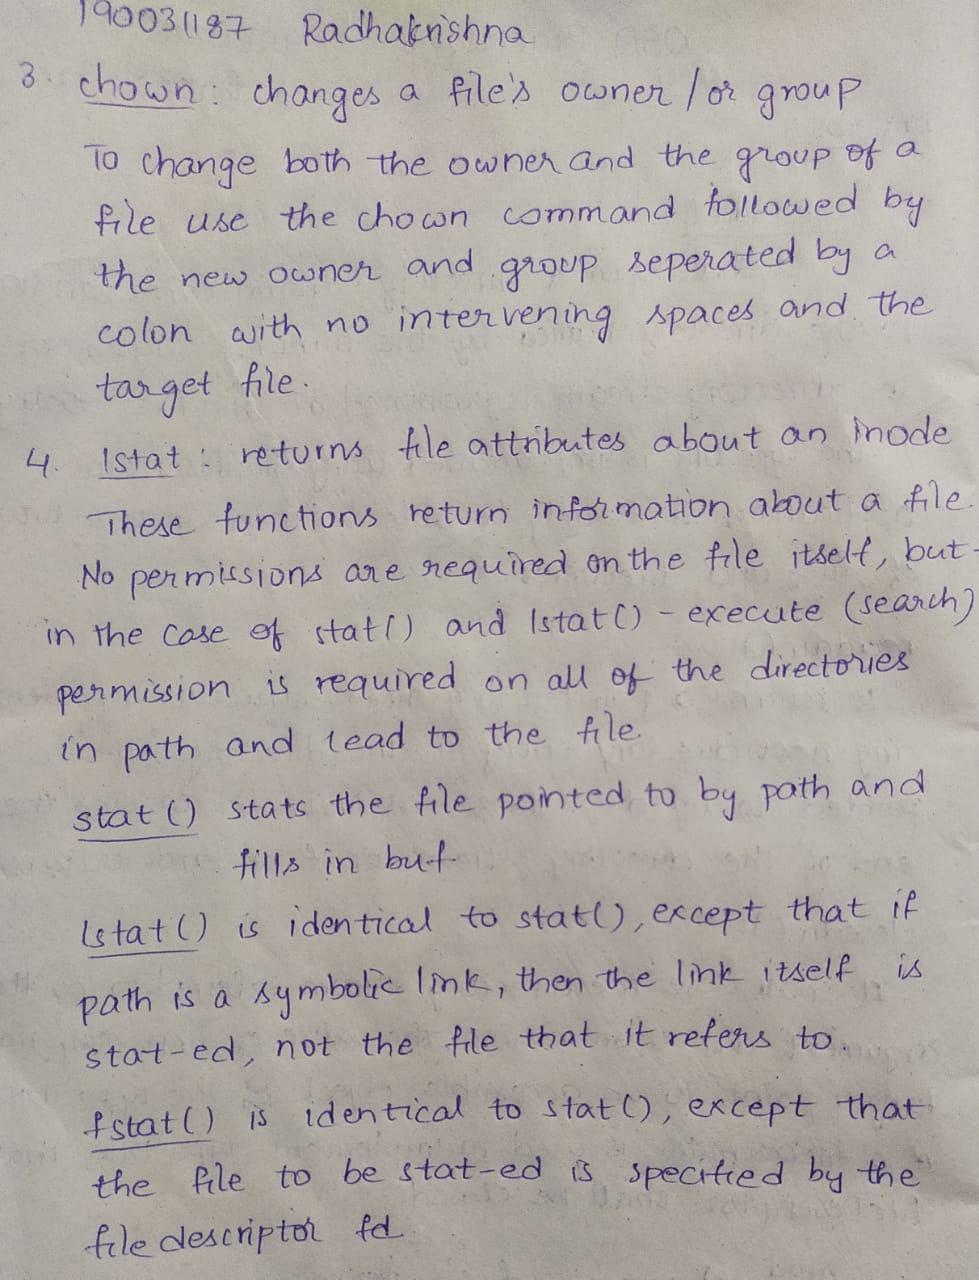 190031187 Radhakrishna
3. chown: changes a file's owner / or group
To change both the owner and the group of a
file use the chown command followed by
the new owner and group seperated by a
colon with no intervening spaces and the
target file.
4. lstat: returns file attributes about an inode
These functions return information about a file.
No permissions are required on the file itself, but -
in the case of stat() and lstat() - execute (search)
permission is required on all of the directories
in path and lead to the file
stat() stats the file pointed to by path and
fills in buf
lstat() is identical to stat(), except that if
path is a symbolic link, then the link itself is
stat-ed, not the file that it refers to.
fstat() is identical to stat(), except that
the file to be stat-ed is specified by the
file descriptor fd